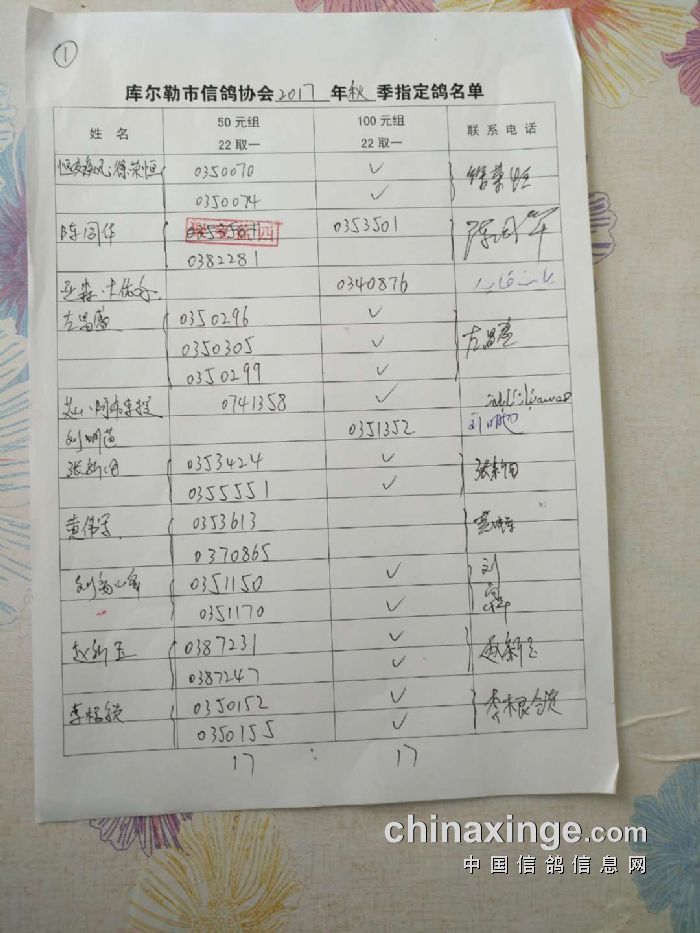 ①
库尔勒市信鸽协会2017年秋季指定鸽名单
姓 名 50元组 22取一 100元组 22取一 联系电话
徐荣恒 0350070 ✓
0350074 ✓
陈国华 0353501
0382281
亚森·卡 0340876
左昌盛 0350296 ✓ 左昌盛
0350305 ✓
0350299 ✓
0741358 ✓
刘明 0351352 刘明
张新田 0353424 ✓ 张新田
0355551 ✓
黄伟军 0353613
0370865
刘 0351150 ✓ 刘
0351170 ✓
赵新玉 0387231 ✓ 赵新玉
0387247 ✓
李根锁 0350152 ✓ 李根锁
0350155 ✓
17 : 17
chinaxinge.com
中国信鸽信息网